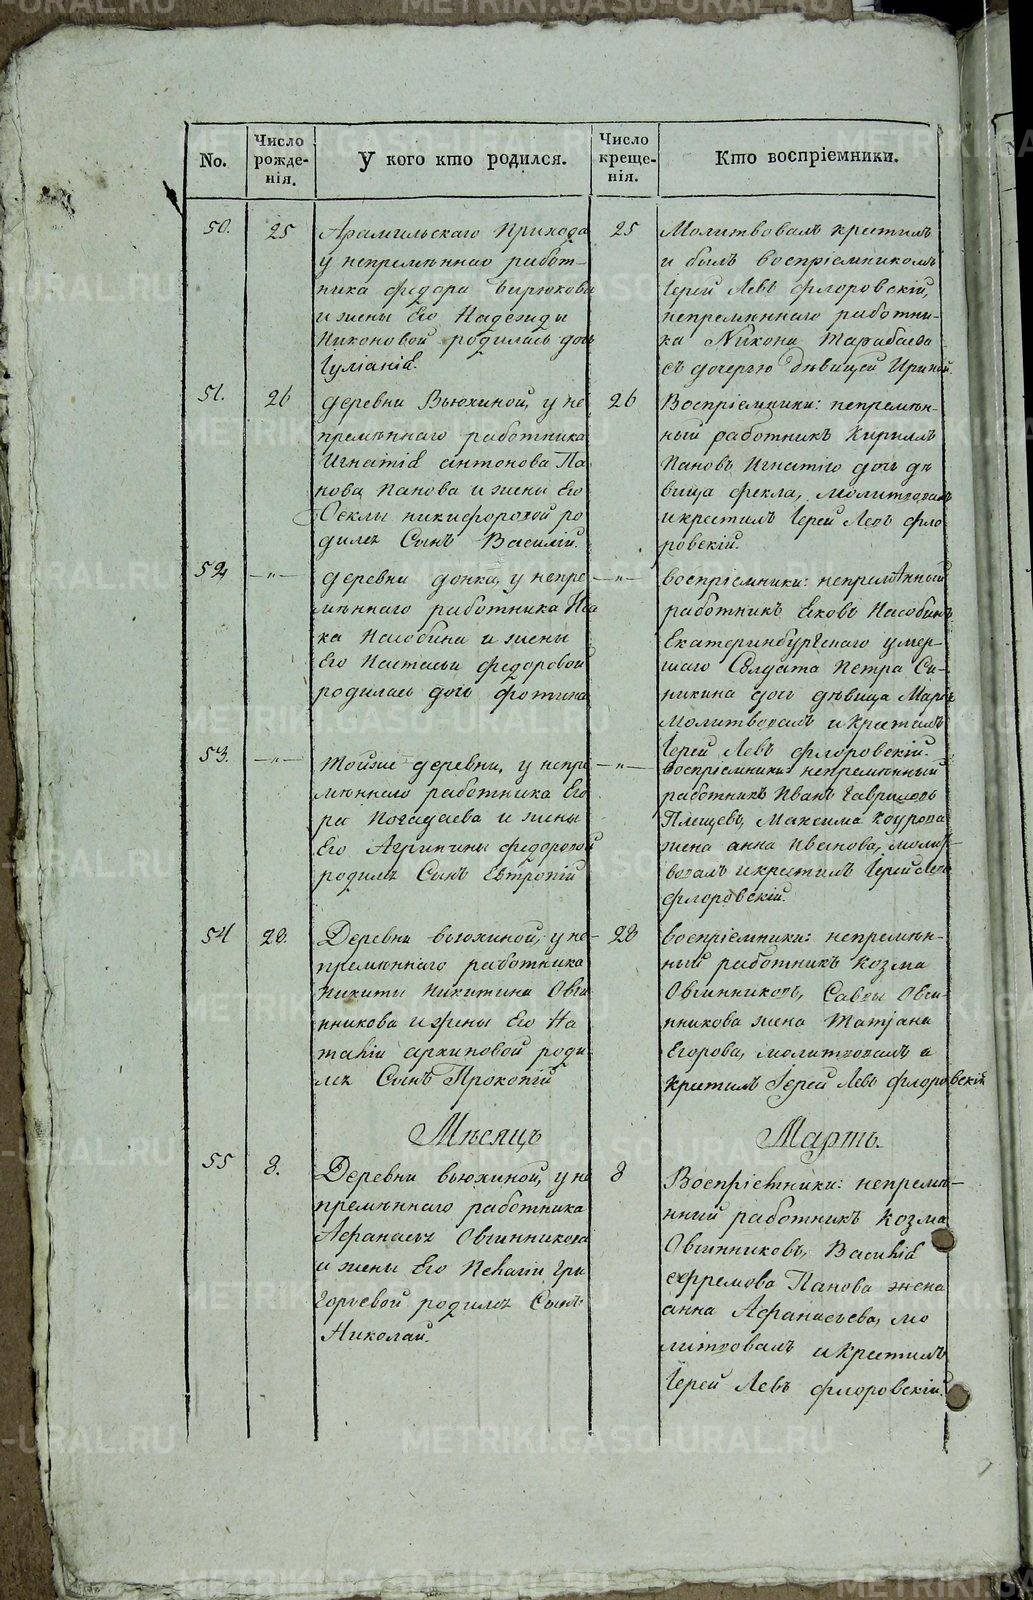 No.
Число рожде-нія.
У кого кто родился.
Число креще-нія.
Кто воспріемники.
50.
25
Арамильскаго прихода
у непремѣннаго работ-
ника Федора Бирюкова
и жены Его Надежды
Никоновой родилась дочь
Іуліанія.
25
Молитвовалъ крестилъ
и былъ воспріемникомъ
Іерей Левъ Флоровскій,
непремѣннаго работни-
ка Никона Тарабаева
съ дочерью дѣвицей Ириной.
51.
26
деревни Вьюхиной, у не
премѣннаго работника
Игнатія антонова Па
нова Панова и жены Его
Феклы никифоровой ро
дился Сынъ Василій.
26
Воспріемники: непремѣн-
ный работникъ Кириллъ
Пановъ, Игнатіго дочь дѣ
вица Фекла, молитвовалъ
и крестилъ Іерей Левъ Фло
ровскій.
52
—„—
деревни донка, у непре
мѣннаго работника Иса
ка Насобина и жены
Его Настасьи Федоровой
родилась дочь Фотина
—„—
воспріемники: непремѣнный
работникъ Яковъ Насобинъ
Екатеринбургскаго умер-
шаго Солдата Петра Си-
никина дочь дѣвица Марѳа
Молитвовалъ и крестилъ
Іерей Левъ Флоровскій.
53.
—„—
тойже деревни, у непре
мѣннаго работника Его
ра Погадаева и жены
Его Агрипины Федоровой
родился Сынъ Евтропій
—„—
воспріемники непремѣнный
работникъ Иванъ Гавриловъ
Плещевъ, Максима Коурова
жена анна Иванова, молит-
вовалъ и крестилъ Іерей Левъ
Флоровскій.
54
28.
Деревни вьюхиной, у не-
премѣннаго работника
Никиты Никитина Овчи
нникова и жены Его На
таліи архиповой роди
лся Сынъ Прокопій
28
воспріемники: непремѣн-
ный работникъ Козма
Овчинниковъ, Саввы Овчи-
нникова жена Татіана
Егорова, молитвовалъ и
крестилъ Іерей Левъ Флоровскій
Мѣсяцъ
Мартъ.
55
8.
Деревни вьюхиной, у не
премѣннаго работника
Афанасья Овчинникова
и жены Его Пелагіи Гри
горьевой родился Сынъ
Николай.
8
Воспріемники: непремѣ-
нный работникъ Козма
Овчинниковъ, Василія
ефремова Панова жена
анна Афанасьева, мо
литвовалъ и крестилъ
Іерей Левъ Флоровскій.
METRIKI.GASO-URAL.RU